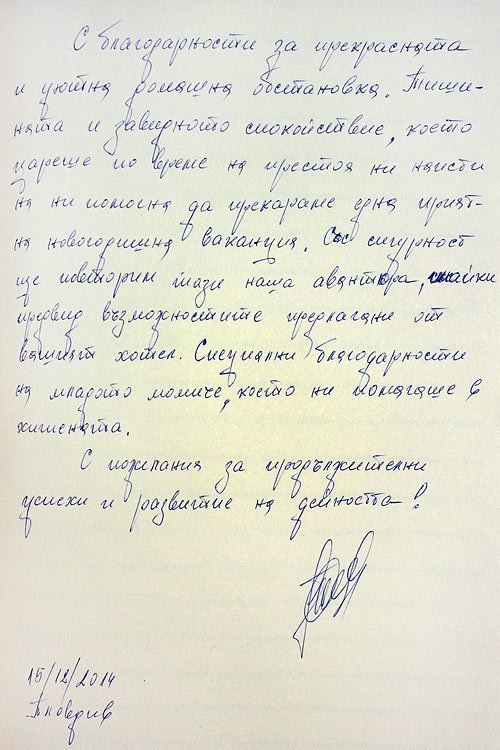 С благодарности за прекрасната
и уютна домашна обстановка. Тиши-
ната и завидното спокойствие, което
цареше по време на престоя ни наисти
на ни помогна да прекараме една прият-
на новогодишна ваканция. Със сигурност
ще повторим тази наша авантюра, имайки
предвид възможностите предлагани от
вашият хотел. Специални благодарности
на младото момиче, което ни помагаше в
хигиената.
С пожелания за продължителни
успехи и развитие на дейността!
15/12/2014
Пловдив